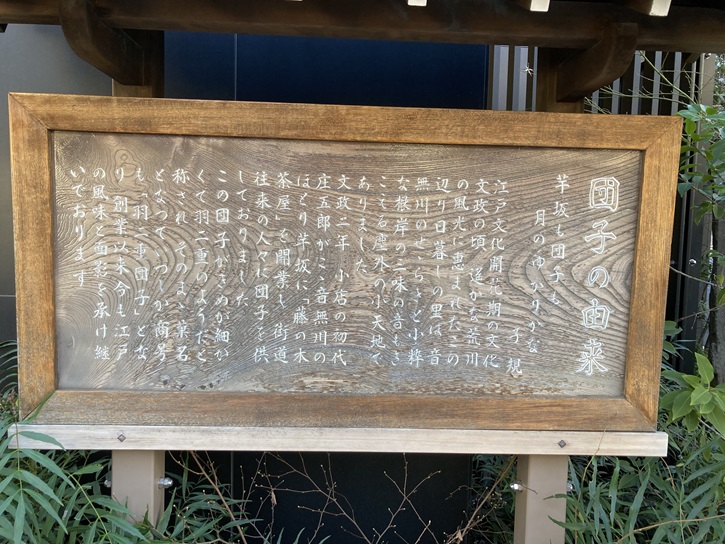 団子の由来
芋坂も団子も
月のゆかりかな
子規
江戸文化開花期の文化
文政の頃、遥かな荒川
の風光に恵まれたこの
辺り日暮しの里は、音
無川のせゝらぎと小粋
な根岸の三味の音もき
こえる塵外の小天地で
ありました
文政二年、小店の初代
庄五郎がここ音無川の
ほとり芋坂に「藤の木
茶屋」を開業し、街道
往来の人々に団子を供
しておりました
この団子がきめが細か
くて羽二重のようだと
称され、そのまゝ菓名
となって、いつしか商号
も「羽二重団子」とな
り、創業以来今も江戸
の風味と面影を承け継
いでおります